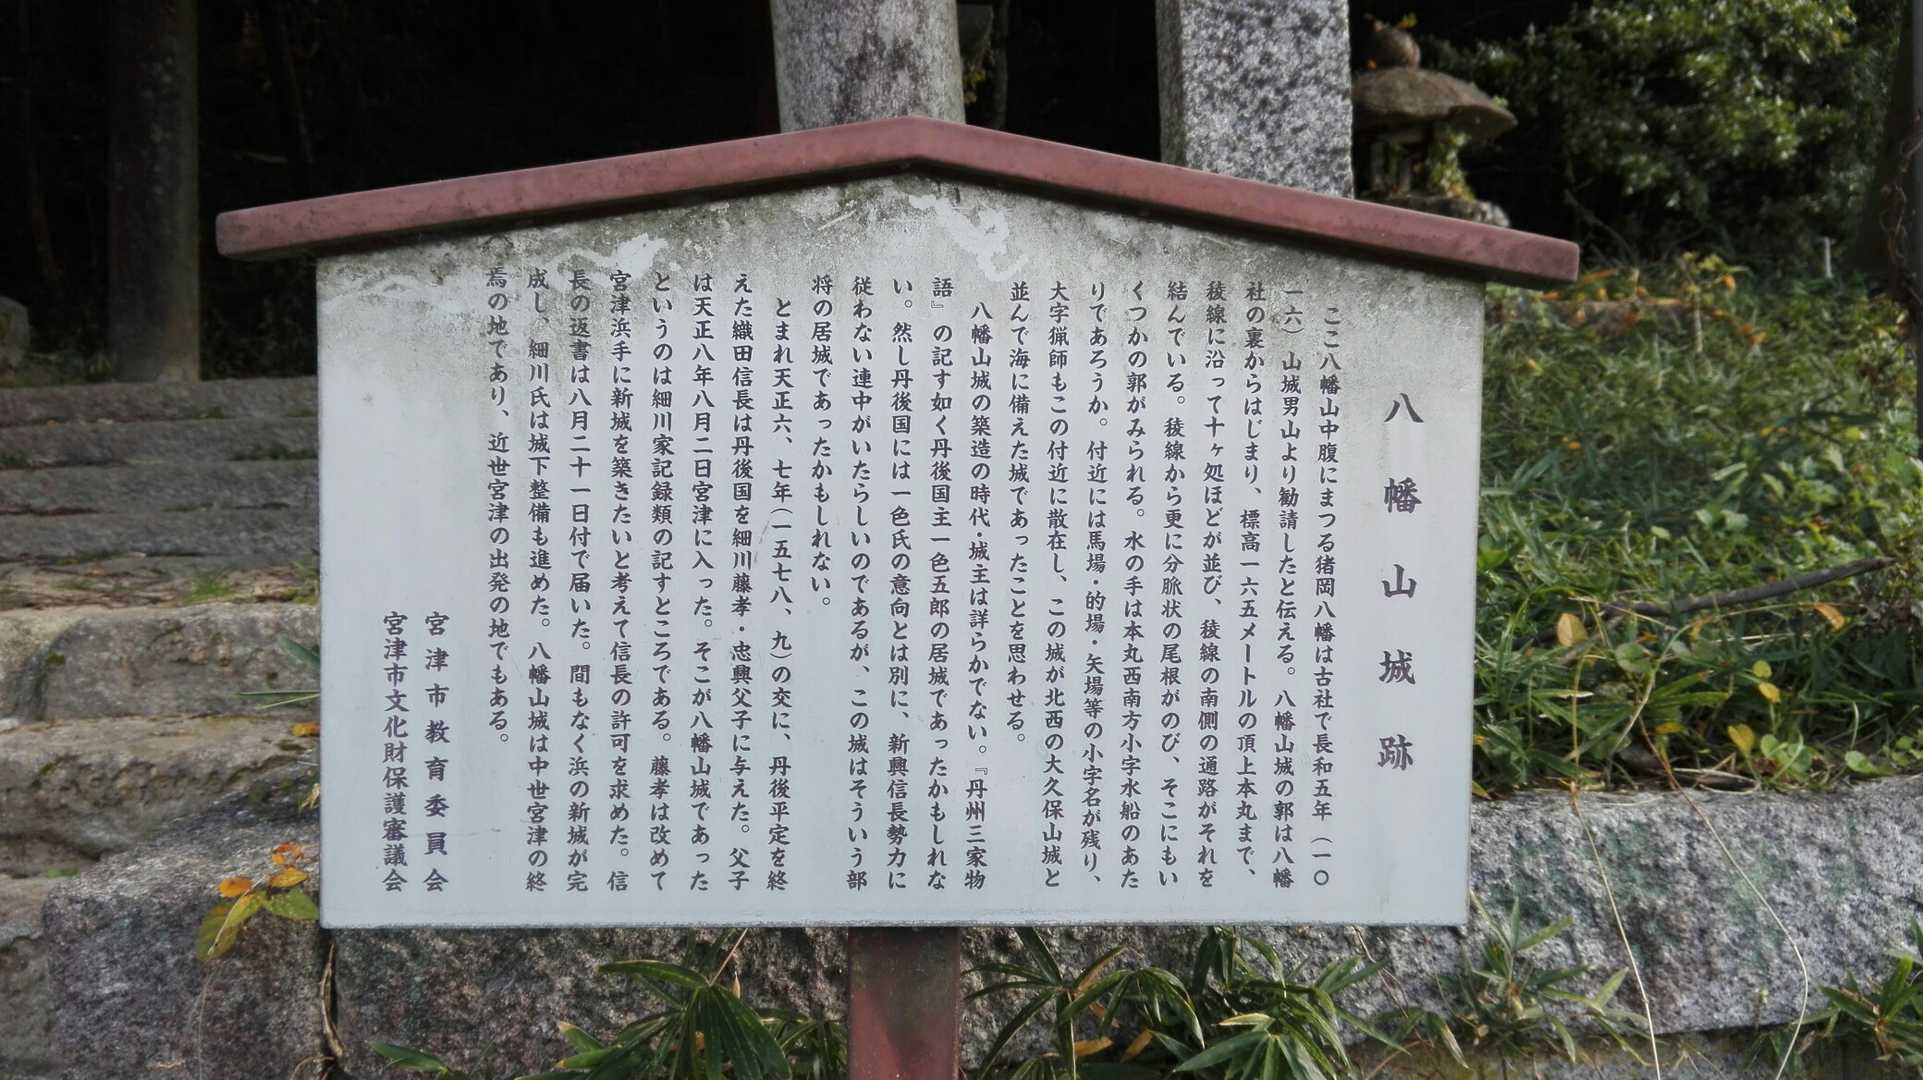 八幡山城跡
ここ八幡山中腹にまつる猪岡八幡は古社で長和五年（一〇
一六）山城男山より勧請したと伝える。八幡山城の郭は八幡
社の裏からはじまり、標高一六五メートルの頂上本丸まで、
稜線に沿って十ヶ処ほどが並び、稜線の南側の通路がそれを
結んでいる。稜線から更に分脈状の尾根がのび、そこにもい
くつかの郭がみられる。水の手は本丸西南方小字水船のあた
りであろうか。付近には馬場・的場・矢場等の小字名が残り、
大字猟師もこの付近に散在し、この城が北西の大久保山城と
並んで海に備えた城であったことを思わせる。
八幡山城の築造の時代・城主は詳らかでない。『丹州三家物
語』の記す如く丹後国主一色五郎の居城であったかもしれな
い。然し丹後国には一色氏の意向とは別に、新興信長勢力に
従わない連中がいたらしいのであるが、この城はそういう部
将の居城であったかもしれない。
とまれ天正六、七年（一五七八、九）の交に、丹後平定を終
えた織田信長は丹後国を細川藤孝・忠興父子に与えた。父子
は天正八年八月二日宮津に入った。そこが八幡山城であった
というのは細川家記録類の記すところである。藤孝は改めて
宮津浜手に新城を築きたいと考えて信長の許可を求めた。信
長の返書は八月二十一日付で届いた。間もなく浜の新城が完
成し、細川氏は城下整備も進めた。八幡山城は中世宮津の終
焉の地であり、近世宮津の出発の地でもある。
宮津市教育委員会
宮津市文化財保護審議会